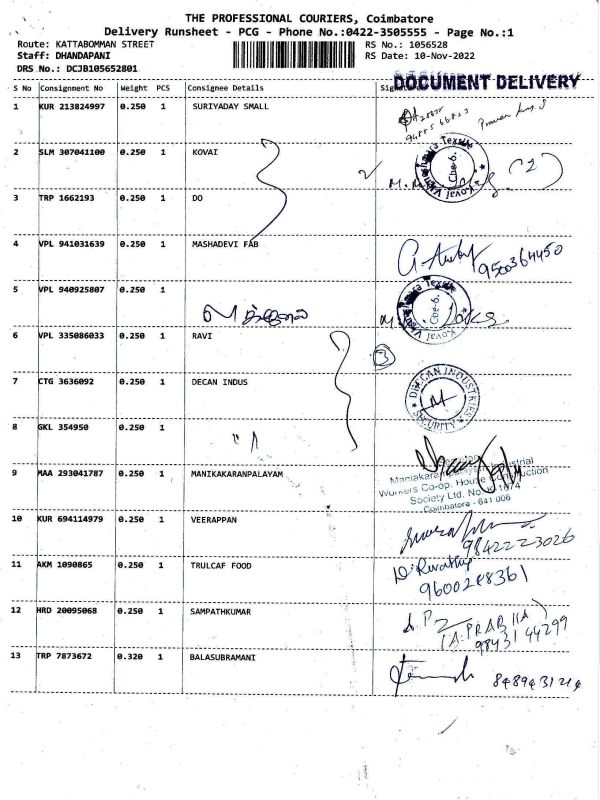 THE PROFESSIONAL COURIERS, Coimbatore
Delivery Runsheet - PCG - Phone No.:0422-3505555 - Page No.:1
Route: KATTABOMMAN STREET RS No.: 1056528
Staff: DHANDAPANI RS Date: 10-Nov-2022
DRS No.: DCJB105652801
DOCUMENT DELIVERY
S No Consignment No Weight PCS Consignee Details
1 KUR 213824997 0.250 1 SURIYADAY SMALL
2 SLM 307041100 0.250 1 KOVAI
Kovai Textile Cbe-6. (2)
3 TRP 1662193 0.250 1 DO
4 VPL 941031639 0.250 1 MASHADEVI FAB
9500364450
5 VPL 940925807 0.250 1
Kovai Textile Cbe-6.
6 VPL 335086033 0.250 1 RAVI
3
7 CTG 3636092 0.250 1 DECAN INDUS
DECCAN INDUSTRIES
SECURITY
8 GKL 354950 0.250 1
9 MAA 293041787 0.250 1 MANIKAKARANPALAYAM
Industrial
Workers Co-op. House Construction
Society Ltd. No. K 1674
Coimbatore - 641 006
10 KUR 694114979 0.250 1 VEERAPPAN
9842223026
11 AKM 1090865 0.250 1 TRULCAF FOOD
D. Revathy
12 HRD 20095068 0.250 1 SAMPATHKUMAR
98431 44299
13 TRP 7873672 0.320 1 BALASUBRAMANI